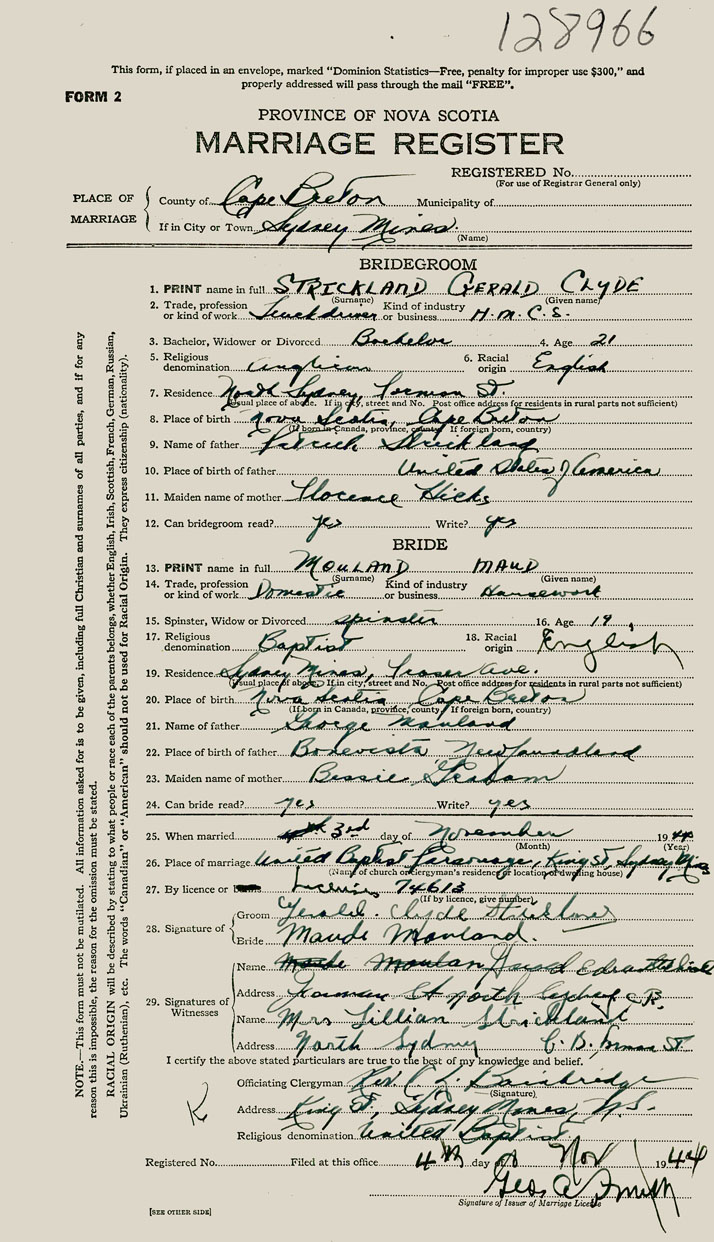 128966
This form, if placed in an envelope, marked "Dominion Statistics—Free, penalty for improper use $300," and
properly addressed will pass through the mail "FREE".
FORM 2
PROVINCE OF NOVA SCOTIA
MARRIAGE REGISTER
REGISTERED No.
(For use of Registrar General only)
PLACE OF MARRIAGE
County of Cape Breton Municipality of
If in City or Town Sydney Mines.
(Name)
BRIDEGROOM
1. PRINT name in full STRICKLAND GERALD CLYDE
(Surname) (Given name)
2. Trade, profession or kind of work Truckdriver Kind of industry or business H.M.C.S.
3. Bachelor, Widower or Divorced Bachelor 4. Age 21
5. Religious denomination Anglican 6. Racial origin English
7. Residence North Sydney, Forman St.
(Usual place of abode. If in city, street and No. Post office address for residents in rural parts not sufficient)
8. Place of birth Nova Scotia, Cape Breton
(If born in Canada, province, county. If foreign born, country)
9. Name of father Patrick Strickland
10. Place of birth of father United States of America
11. Maiden name of mother Florence Hicks
12. Can bridegroom read? yes Write? yes
BRIDE
13. PRINT name in full MOULAND MAUD
(Surname) (Given name)
14. Trade, profession or kind of work Domestic Kind of industry or business Housework
15. Spinster, Widow or Divorced spinster 16. Age 19,
17. Religious denomination Baptist 18. Racial origin English
19. Residence Sydney Mines, Fraser Ave.
(Usual place of abode. If in city, street and No. Post office address for residents in rural parts not sufficient)
20. Place of birth Nova Scotia Cape Breton
(If born in Canada, province, county. If foreign born, country)
21. Name of father George Mouland
22. Place of birth of father Bonevista Newfoundland
23. Maiden name of mother Bessie Graham
24. Can bride read? yes Write? yes
25. When married 3rd day of November 1944
(Month) (Year)
26. Place of marriage United Baptist Parsonage, King St, Sydney Mines
(Name of church or clergyman's residence or location of dwelling house)
27. By licence or License 74613
(If by licence, give number)
28. Signature of
Groom Gerald. Clyde Strickland
Bride Maude Mouland.
29. Signatures of Witnesses
Name Moulan
Address Forman St North Sydney C.B.
Name Mrs Lillian Strickland
Address North Sydney C.B. Forman St
I certify the above stated particulars are true to the best of my knowledge and belief.
Officiating Clergyman Rev.
(Signature)
Address King St, Sydney Mines, N.S.
Religious denomination United Baptist.
Registered No. Filed at this office 4th day of Nov 1944
Geo. A Smith
Signature of Issuer of Marriage License
[SEE OTHER SIDE]
NOTE.—This form must not be mutilated. All information asked for is to be given, including full Christian and surnames of all parties, and if for any
reason this is impossible, the reason for the omission must be stated.
RACIAL ORIGIN will be described by stating to what people or race each of the parents belongs, whether English, Irish, Scottish, French, German, Russian,
Ukrainian (Ruthenian), etc. The words "Canadian" or "American" should not be used for Racial Origin. They express citizenship (nationality).